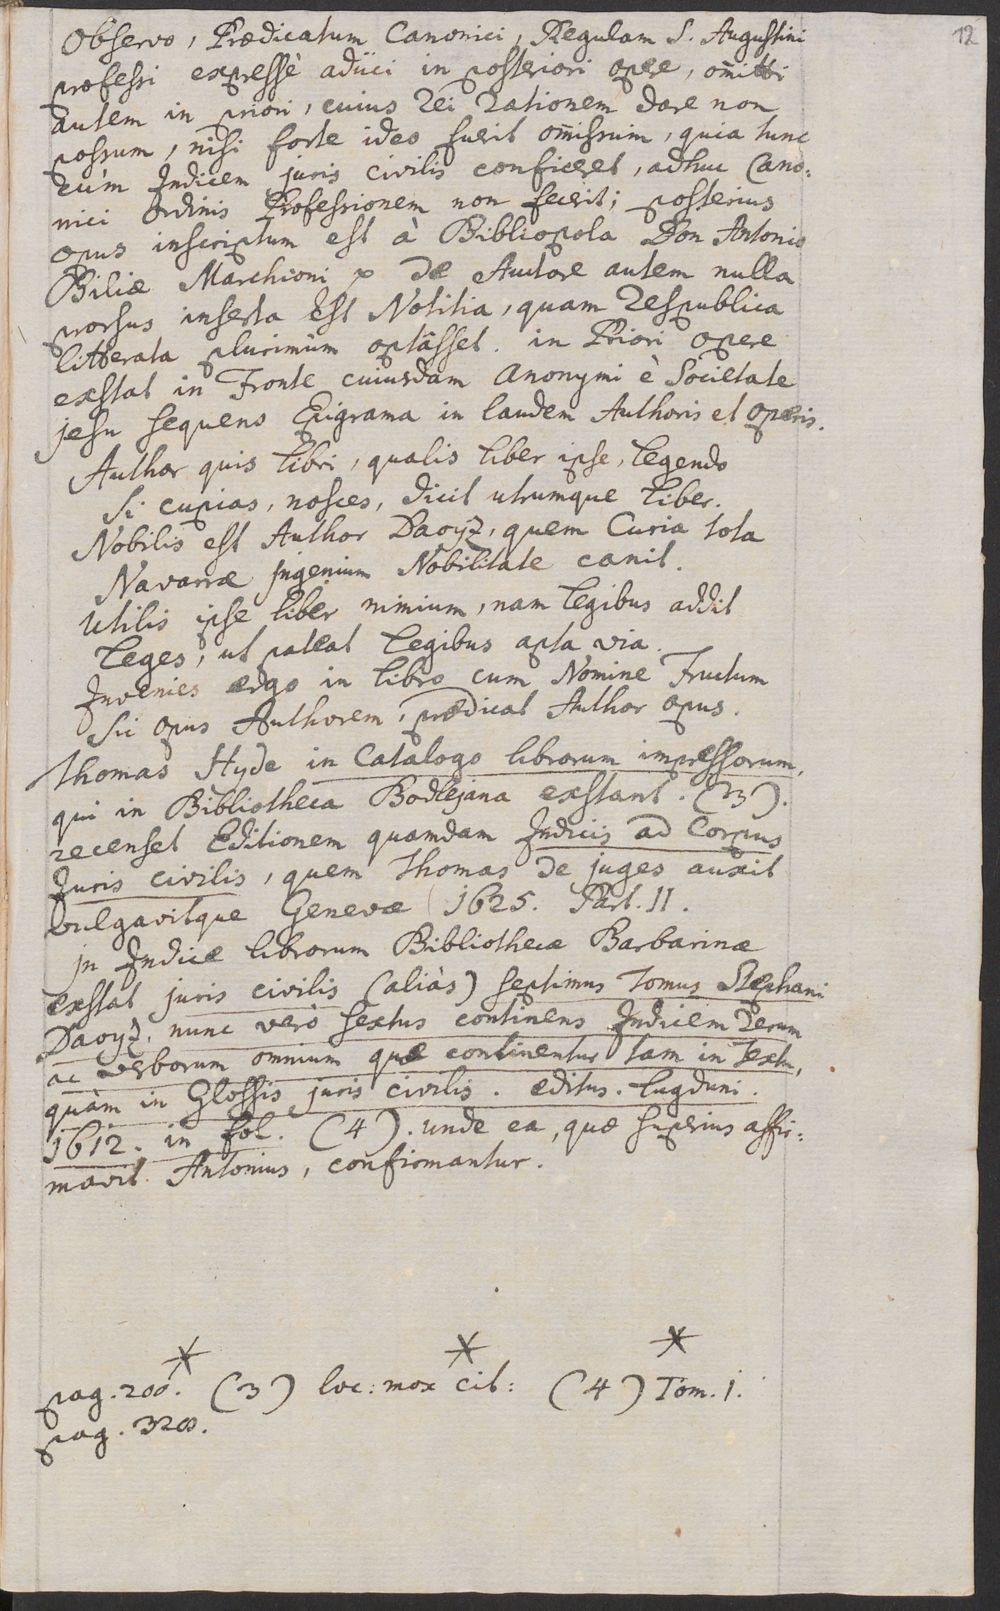 12
Observo, Prædicatum Canonici, Regulam S. Augustini
professi expressè adiici in posteriori opere, om̄itti
autem in priori, cuius rei rationem dare non
possum, nisi forte ideo fuerit om̄issum, quia tunc
cùm Indicem juris civilis conficeret, adhuc Cano:
nici ordinis Professionem non fecerit; posterius
opus inscriptum est à Bibliopola Don Antonio
Biliæ Marchioni de Autore autem nulla
prorsus inserta est Notitia, quam Respublica
litterata plurimùm optâsset. in Priori opere
exstat in Fronte cuiusdam Anonymi è Societate
jesu sequens Epigrama in laudem Authoris et operis.
Author quis libri, qualis liber ipse, legendo
Si cupias, nosces, dicit utrumque liber.
Nobilis est Author Daoÿz, quem Curia tota
Navarræ jngenium Nobilitate canit.
Utilis ipse liber nimium, nam legibus addit
leges, ut pateat legibus apta via.
Invenies ergo in libro cum Nomine Fructum
Sic opus Authorem, prædicat Author opus.
Thomas Hyde in Catalogo librorum impressorum,
qui in Bibliotheca Bodlejana exstant. (3).
recenset Editionem quamdam Indicis ad Corpus
Juris civilis, quem Thomas de juges auxit
vulgavitque Genevæ 1625. Part. II.
jn Indice librorum Bibliothecæ Barbarinæ
exstat juris civilis (aliàs) septimus Tomus Stephani
Daoyz, nunc verò sextus continens Indicem rerum
ac verborum omnium quæ continentur tam in Textu,
quàm in Glossis juris civilis. editus. lugduni.
1612. in fol. (4). unde ea, quæ superius affir:
mavit Antonius, confirmantur.
pag. 200. (3) loc: mox cit: (4) Tom. 1.
pag. 328.